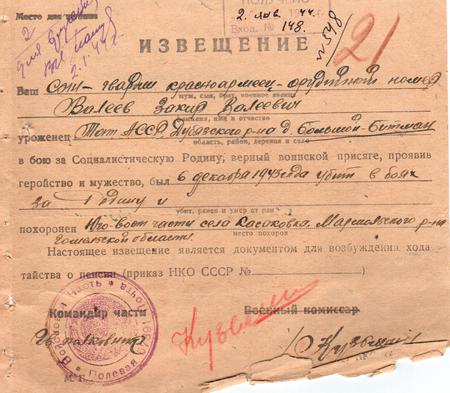 Место для штампа
ПОЛУЧЕНО
2. янв. 44 г.
Вход. № 148.
21
2.1.44 г.
ИЗВЕЩЕНИЕ
Ваш Сын - гвардии красноармеец - орудийный номер
муж, сын, брат, военное звание
Валеев Закир Валеевич
фамилия, имя и отчество
уроженец Тат. АССР, р-на д. Большой Битаман
область, район, деревня и село
в бою за Социалистическую Родину, верный воинской присяге, проявив
геройство и мужество, был 6 декабря 1943 года убит в боях
за Родину и
убит, ранен и умер от ран
похоронен Юго-вост части села Касаковка,
место похорон
Гомельской области.
Настоящее извещение является документом для возбуждения хода
тайства о пенсии (приказ НКО СССР №
Командир части
Военный комиссар
Гв. полковник
Кузьмин
Кузьмин
Полевая Почта
М. П.